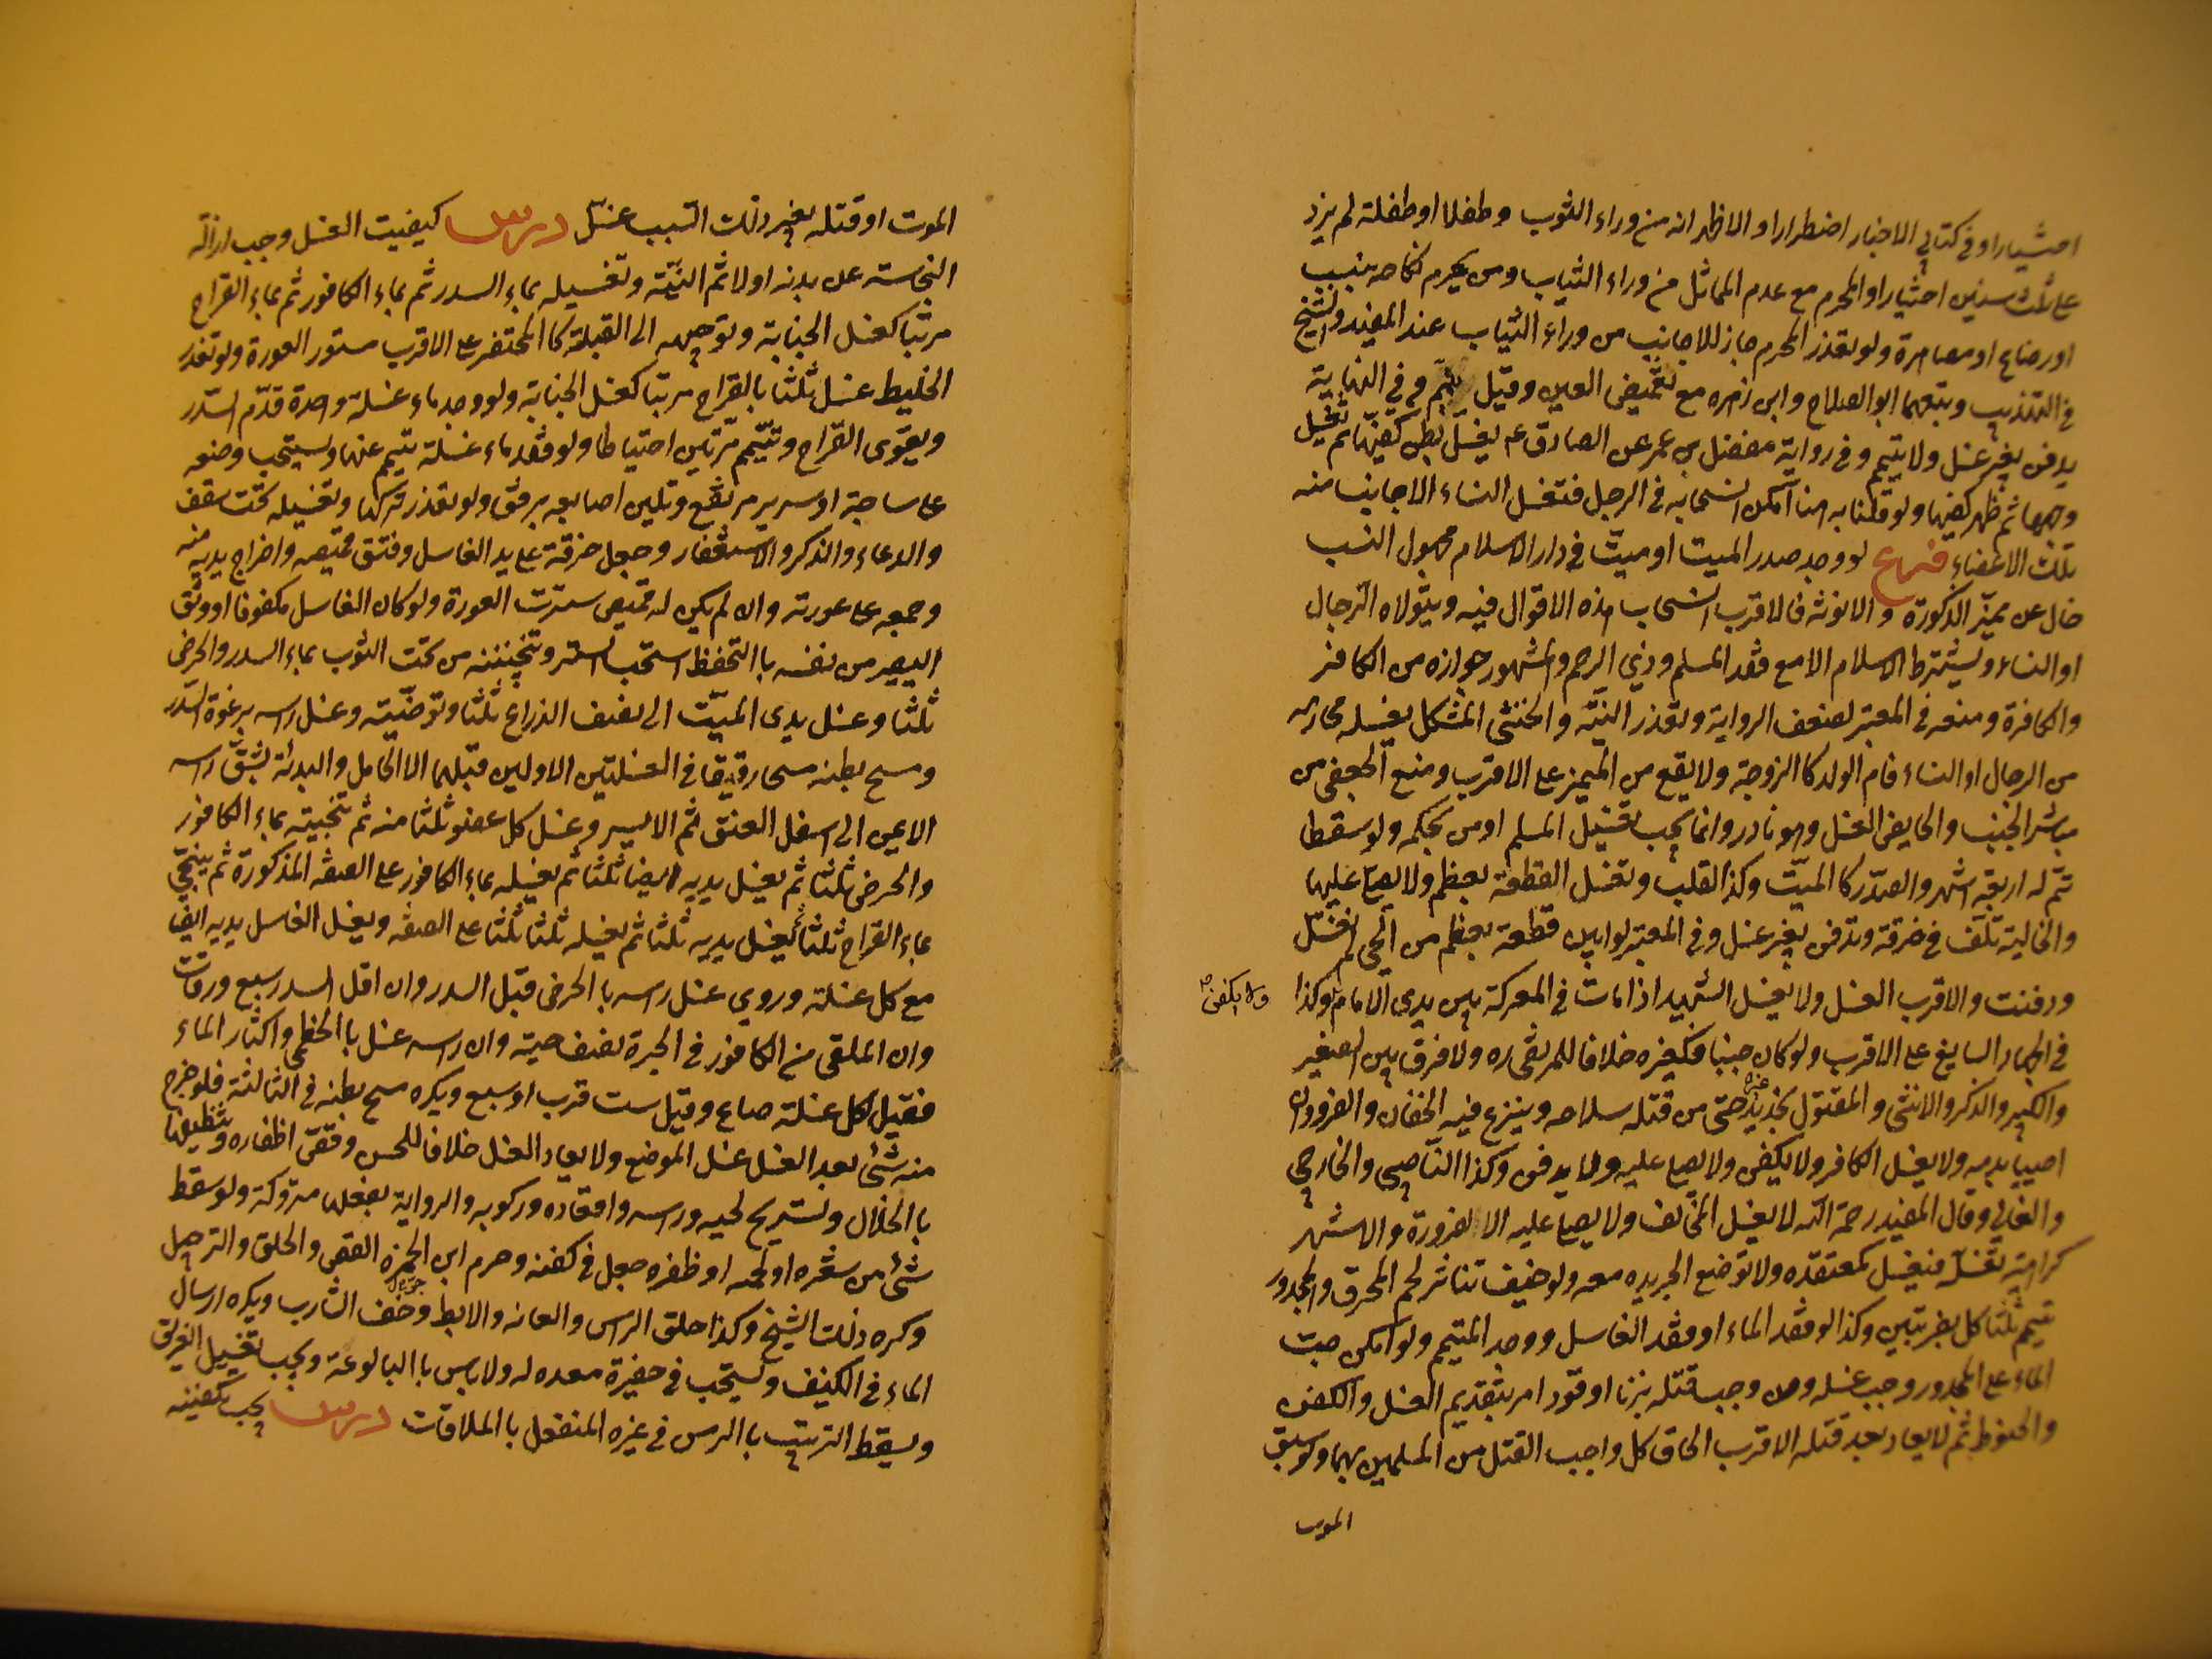 اختيارا وفي كتابي الاخبار اضطرارا والاظهر انه من وراء الثوب وطفلا او طفلة لم يزد
على ثلث سنين اختيارا والمحرم مع عدم المماثل من وراء الثياب ومن يحرم نكاحه بنسب
او رضاع او مصاهرة ولو تعذر المحرم جاز للاجانب من وراء الثياب عند المفيد والشيخ
في التهذيب وتبعهما ابو الصلاح وابن زهره مع تغميض العين وقيل ييمّم وفي النهاية
يدفن بغير غسل ولا تيمم وفي رواية مفضل بن عمر عن الصادق ع يغسل بطن كفيها ثم تغسيل
وجهها ثم ظهر كفيها ولو قلنا به هنا امكن انسحابه في الرجل فتغسل النساء الاجانب منه
تلك الاعضاء فرع لو وجد صدر الميت او ميت في دار الاسلام مجهول النسب
خال عن مميّز الذكورة والانوثه فالاقرب انسحاب هذه الاقوال فيه ويتولاه الرجال
او النساء ويشترط الاسلام الا مع فقد المسلم وذي الرحم والمشهور جوازه من الكافر
والكافرة ومنعه في المعتبر لضعف الرواية وتعذر النية والخنثى المشكل يغسله محارمه
من الرجال او النساء فام الولد كا الزوجة ولا يقع من المميز على الاقرب ومنع الجعفي من
مباشر الجنب والحايض الغسل وهو نادر وانما يجب تغسيل المسلم او من بحكمه ولو سقطا
تمّ له اربعة اشهر والصدر كا الميّت وكذا القلب وتغسل القطعة بعظم ولا يصلي عليها
والخالية تلف في خرقة وتدفن بغير غسل وفي المعتبر لو ابين قطعة بعظم من الحي لم تغسل
ودفنت والاقرب الغسل ولا يغسل الشهيد اذا مات في المعركة بين يدي الامام وكذا
ولا يكفن صح
في الجهاد السايغ على الاقرب ولو كان جنبا فكغيره خلافا للمرتضى ره ولا فرق بين الصغير
والكبير والذكر والانثى والمقتول بحديد وغيره حتى من قتله سلاحه وينزع فيه الخفان والفرو وان
اصيبا بدمه ولا يغسل الكافر ولا يكفن ولا يصلي عليه ولا يدفن وكذا الناصبي والخارجي
والغالي وقال المفيد رحمة الله لا يغسل المخالف ولا يصلي عليه الا لضرورة والاشهر
كراهية تغسله فيغسل كمعتقده ولا توضع الجريده معه ولو خيف تناثر لحم المحرق والمجدور
تيمم ثلثا كل بضربتين وكذا لو فقد الماء او فقد الغاسل ووجد المتيمم ولو امكن صب
الماء على المجدور وجب غسله ومن وجب قتله بزنا او قود امر بتقديم الغسل والكفن
والحنوط ثم لا يعاد بعد قتله الاقرب الحاق كل واجب القتل من المسلمين بهما ولو سبق
الموت
الموت او قتله بغير ذلك السبب غسل درس كيفيت الغسل وجب ازالة
النجاسته عن بدنه اولا ثم النيّة وتغسيله بماء السدر ثم بماء الكافور ثم بماء القراح
مرتبا كغسل الجنابة وتوجهه الى القبلة كا المحتضر على الاقرب مستور العورة ولو تعذر
الخليط غسل ثلثا بالقراح مرتبا كغسل الجنابة ولو وجد ماء غسلة واحدة قدّم السّدر
ويقوى القراح وتتيمم مرتين احتياطا ولو فقد ماء غسلة تتيمم عنها ويستحب وضعه
على ساجة او سرير مرتفع وتلين اصابعه برفق ولو تعذر تركها وتغسيله تحت سقف
والدعاء والذكر والاستغفار وجعل خرقة على يد الغاسل وفتق قميصه واخراج يديه منه
وجمعه على عورته وان لم يكن له قميص سترت العورة ولو كان الغاسل مكفوفا او وثق
البصير من نفسه با التحفظ استحب الستر وتنجيته من تحت الثوب بماء السدر والحرض
ثلثا وغسل يدى الميّت الى نصف الذراع ثلثا وتوضيته وغسل راسه برغوة السّدر
ومسح بطنه مسحا رقيقا في الغسلتين الاولين قبلهما الا الحامل والبدئة بشق راسه
الايمن الى اسفل العنق ثم الايسر وغسل كل عضو ثلثا منه ثم تنجيته بماء الكافور
والحرض ثلثا ثم يغسل يديه ايضا ثلثا ثم يغسله بماء الكافور على الصفة المذكورة ثم ينجي
بماء القراح ثلثا ثم يغسل يديه ثلثا ثم يغسله ثلثا ثلثا على الصفة ويغسل الغاسل يديه ايضا
مع كل غسلة وروي غسل راسه با الحرض قبل السدر وان اقل السدر سبع ورقات
وان الملقى من الكافور في الجرة نصف حبة وان راسه غسل با الخطمي واكثار الماء
فقيل لكل غسلة صاع وقيل ست قرب او سبع ويكره مسح بطنه في الثالثة فلو خرج
منه شئ بعد الغسل غسل الموضع ولا يعاد الغسل خلافا للحسن وقص اظفاره وتنظيفها
با الخلال وتسريح لحيه وراسه واقعاده وركوبه والرواية بفعلها متروكة ولو سقط
شئ من شعره او لحمه او ظفره جعل في كفنه وحرم ابن الحمزه القص والحلق والترجيل
وكره ذلك الشيخ وكذا حلق الراس والعانه والابط وحف الشارب ويكره ارسال
الماء في الكنيف ويستحب في حفيرة معده له ولا باس با البالوعة ويجب تغسيل الغريق
ويسقط الترتيب با الرمس في غيره المنفعل با الملاقات درس يجب تكفينه